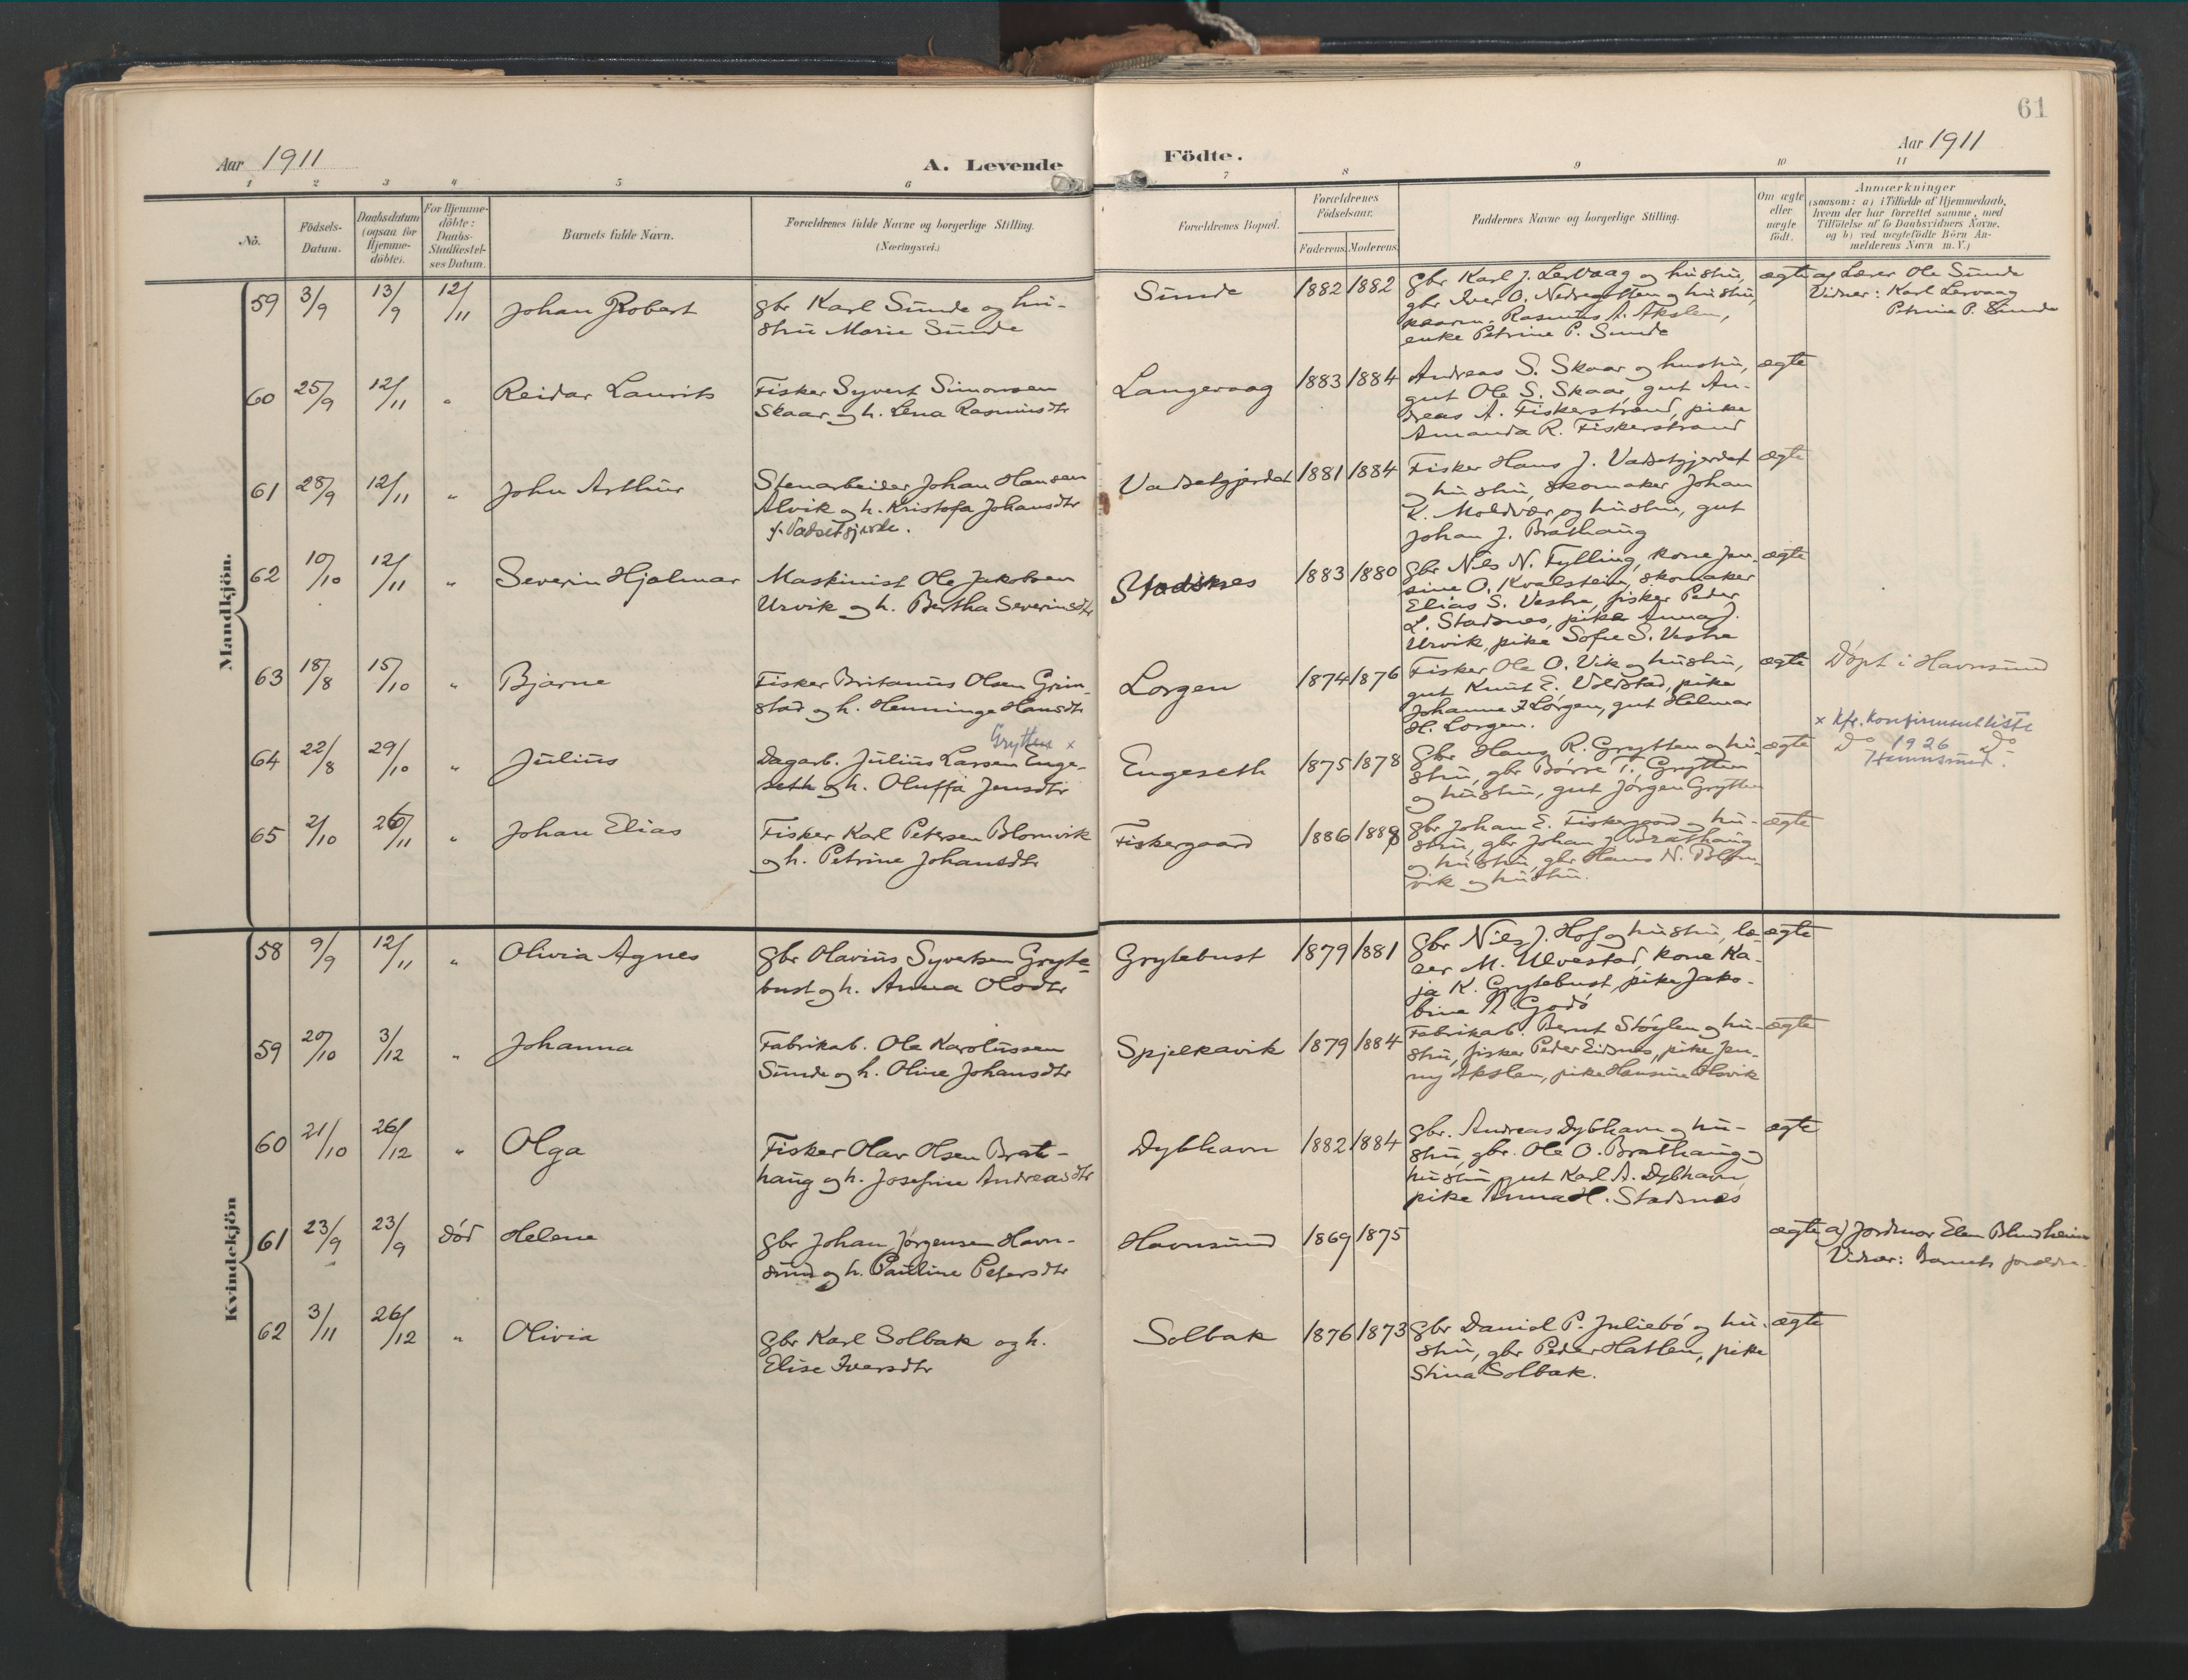 61
Aar 1911
A. Levende Födte.
Aar 1911
1 2 3 4 5 6 7 8 9 10 11
No.
Födsels-Datum.
Daabsdatum (ogsaa for Hjemme-döbte).
For Hjemme-döbte: Daabs-Stadfæstel-ses Datum.
Barnets fulde Navn.
Forældrenes fulde Navne og borgerlige Stilling. (Næringsvei.)
Forældrenes Bopæl.
Forældrenes Födselsaar.
Faderens. Moderens.
Faddernes Navne og borgerlige Stilling.
Om ægte eller uægte födt.
Anmærkninger
(saasom: a) i Tilfælde af Hjemmedaab,
hvem der har forrettet samme, med
Tilföielse af to Daabsvidners Navne,
og b) ved uægtefödte Börn An-
melderens Navn m. V.)
Mandkjön.
59 3/9 13/9 12/11 Johan Robert
gbr Karl Sunde og hu-
stru Marie Sunde
Sunde 1882 1882
gbr Karl J. Lervaag og hustru,
gbr Iver O. Nedregotten og hustru,
Rasmus A. Akslen,
enke Petrine P. Sunde
ægte
a) Lærer Ole Sunde
Vidner: Karl Lervaag
Petrine P. Sunde
60 25/9 12/11 " Reidar Laurits
Fisker Syvert Simonsen
Skaar og h. Lena Rasmusdtr
Langevaag 1883 1884
Andreas S. Skaar og hustru,
gut Ole S. Skaar, gut An-
dreas A. Fiskerstrand, pike
Amanda R. Fiskerstrand
ægte
61 28/9 12/11 " John Arthur
Stenarbeider Johan Hansen
Alvik og h. Kristofa Johansdtr
f. Vadsetgjerde.
Vadsetgjerdet 1881 1884
Fisker Hans J. Vadsetgjerdet
og hustru, skomaker Johan
K. Moldvær og hustru, gut
Johan J. Brathaug
ægte
62 10/10 12/11 " Severin Hjalmar
Maskinist Ole Jakobsen
Urvik og h. Bertha Severinsdtr
Stadsnes 1883 1880
gbr Nils N. Fylling, kone Jen-
sine O. Kvalstein, skomaker
Elias S. Vestre, fisker Peder
L. Stadsnes, pike Anna J.
Urvik, pike Sofie S. Vestre
ægte
63 18/8 15/10 " Bjarne
Fisker Britanus Olsen Grim-
stad og h. Henninge Hansdtr
Lorgen 1874 1876
Fisker Ole O. Vik og hustru,
gut Knut E. Volstad, pike
Johanne I Lorgen, gut Helmar
H. Lorgen.
ægte
Döpt i Havnsund
64 22/8 29/10 " Julius
Grytten x
Dagarb. Julius Larsen Enge-
seth og h. Oluffa Jensdtr
Engeseth 1875 1878
gbr Hans R. Grytten og hu-
stru, gbr Børre T. Grytten
og hustru, gut Jørgen Grytten
ægte
x Kfr. Konfirmantliste
1926
Hamnsund.
65 2/10 26/11 " Johan Elias
Fisker Karl Petersen Blomvik
og h. Petrine Johansdtr
Fiskergaard 1886 1888
gbr Johan E. Fiskergaard og hu-
stru, gbr Johan J Brathaug
og hustru, gbr Hans N. Blom-
vik og hustru.
ægte
Kvindekjön
58 9/9 12/11 " Olivia Agnes
gbr Olavius Syvertsen Gryte-
bust og h. Anna Olsdtr
Grytebust 1879 1881
gbr Nils J. Hof og hustru, læ-
rer M. Ulvestad, kone Ka-
ja K. Grytebust, pike Jako-
bine N Godö
ægte
59 20/10 3/12 " Johanna
Fabrikarb. Ole Karolussen
Sunde og h. Oline Johansdtr
Spjelkavik 1879 1884
Fabrikarb. Bernt Støylen og hu-
stru, fisker Peder Eidsnes, pike Jen-
ny Akslen, pike Hansine Olsvik
ægte
60 21/10 26/12 " Olga
Fisker Olav Olsen Brat-
haug og h. Josefine Andreasdtr
Dybhavn 1882 1884
gbr. Andreas Dybhavn og hu-
stru, gbr. Ole O. Brathaug og
hustru, gut Karl A. Dybhavn,
pike Anna H. Stadsnes
ægte
61 23/9 23/9 död Helene
gbr Johan Jørgensen Havn-
sund og h. Pauline Petersdtr
Havnsund 1869 1875
ægte
a) Jordmor Elen Blindheim
Vidner: Barnets forældre.
62 3/11 26/12 " Olivia
gbr Karl Solbak og h.
Elise Iversdtr
Solbak 1876 1873
gbr Daniel P. Juliebö og hu-
stru, gbr Peder Hatlen, pike
Stina Solbak.
ægte